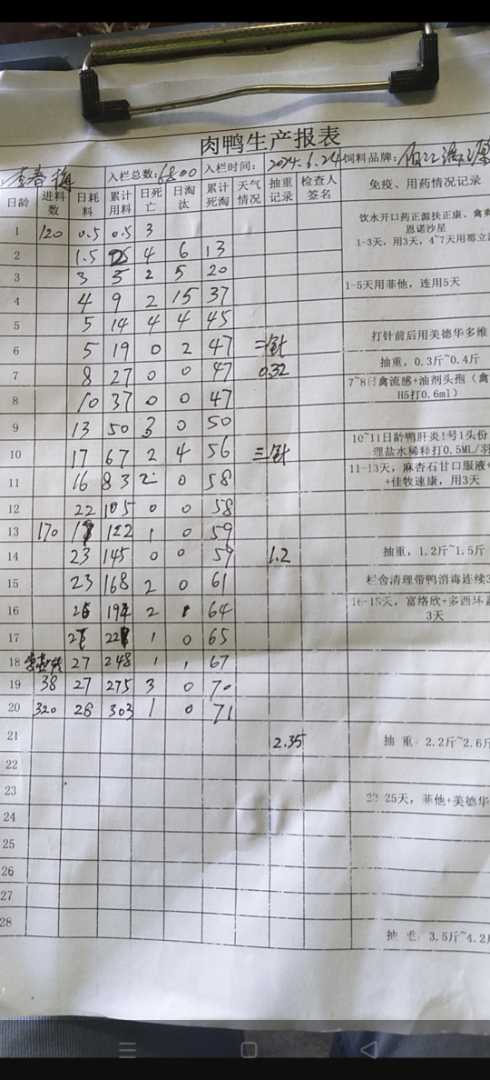 肉鸭生产报表
李春梅 入栏总数: 6800 入栏时间: 2024.6.24 饲料品牌:
日龄 进料数 日耗料 累计用料 日死亡 日淘汰 累计死淘 天气情况 抽重记录 检查人签名 免疫、用药情况记录
1 120 0.5 0.5 3 饮水开口药正源扶正康、禽
恩诺沙星
2 1.5 4 6 13 1-3天，用3天，4~7天用
3 3 5 2 5 20
4 4 9 2 15 37 1-5天用菲他，连用5天
5 5 14 4 4 45
6 5 19 0 2 47 二针 打针前后用美德华多维
7 8 27 0 0 47 0.32 抽重，0.3斤~0.4斤
8 10 37 0 0 47 7~8日禽流感+油剂头孢（禽
H5打0.6ml）
9 13 50 3 0 50
10 17 67 2 4 56 三针 10~11日龄鸭肝炎1号1头份
理盐水稀释打0.5ML/羽
11 16 83 2 0 58 11-13天，麻杏石甘口服液+
+佳牧速康，用3天
12 22 105 0 0 58
13 170 17 122 1 0 59
14 23 145 0 0 59 1.2 抽重，1.2斤~1.5斤
15 23 168 2 0 61 栏舍清理带鸭消毒连续3
16 26 194 2 1 64 16-18天，富络欣+多西环素
3天
17 27 221 1 0 65
18 27 248 1 1 67
19 38 27 275 3 0 70
20 320 28 303 1 0 71
21 2.35 抽重 2.2斤~2.6斤
22
23 23-25天，菲他+美德华
24
25
26
27
28 抽毛 3.5斤~4.2斤